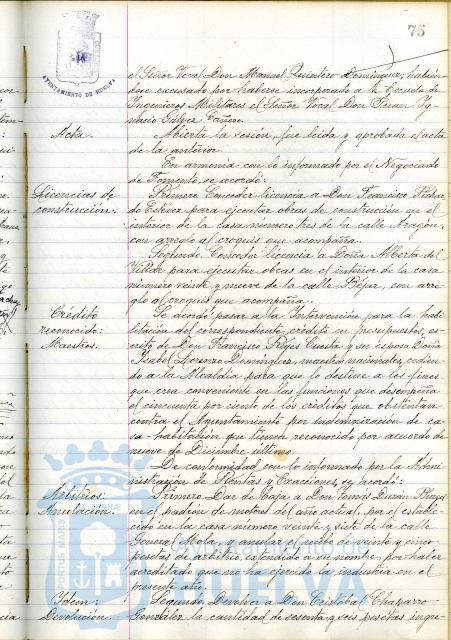 75
AYUNTAMIENTO DE HUELVA
el Señor Vocal Don Manuel Quintero Domínguez, habién-
dose excusado por haberse incorporado a la Escuela de
Ingenieros Militares el Señor Vocal Don Juan Ig-
nacio Gálvez Cañero.
Acta.
Abierta la sesión, fue leida y aprobada el acta
de la anterior.
En armonia con lo informado por el Negociado
de Fomento, se acordó:
Licencias de
construcción.
Primero. Conceder licencia a Don Francisco
de Estévez para ejecutar obras de construcción en el
interior de la casa número tres de la calle Aragón,
con arreglo al croquis que acompaña.
Segundo. Conceder licencia a Doña Alberta del
Villar para ejecutar obras en el interior de la casa
número veinte y nueve de la calle Béjar, con arre-
glo al croquis que acompaña.
Crédito
reconocido:
Maestros.
Se acordó pasar a la Intervención para la habi-
litación del correspondiente crédito en presupuestos, es-
crito de Don Francisco Reyes Cuesta y su esposa Doña
Isabel Lorenzo Domínguez, maestros nacionales, cedien-
do a la Alcaldía para que lo destine a los fines
que crea conveniente en las funciones que desempeña
el cincuenta por ciento de los créditos que ostentan
contra el Ayuntamiento por indemnización de ca-
sa-habitación que tienen reconocido por acuerdo de
nueve de Diciembre último.
De conformidad con lo informado por la Admi-
nistración de Rentas y Exacciones, se acordó:
Arbitrios:
Anulación.
Primero. Dar de baja a Don Tomás Durán
en el padrón de motores del año actual, por el estable-
cido en la casa número veinte y siete de la calle
General Mola, y anular el recibo de veinte y cinco
pesetas de arbitrio, extendido a su nombre, por haber
acreditado que no ha ejercido la industria en el
presente año.
Idem:
Devolución.
Segundo. Devolver a Don Cristóbal Chaparro
González la cantidad de sesenta y seis pesetas ingre-
PORTUS MARIS